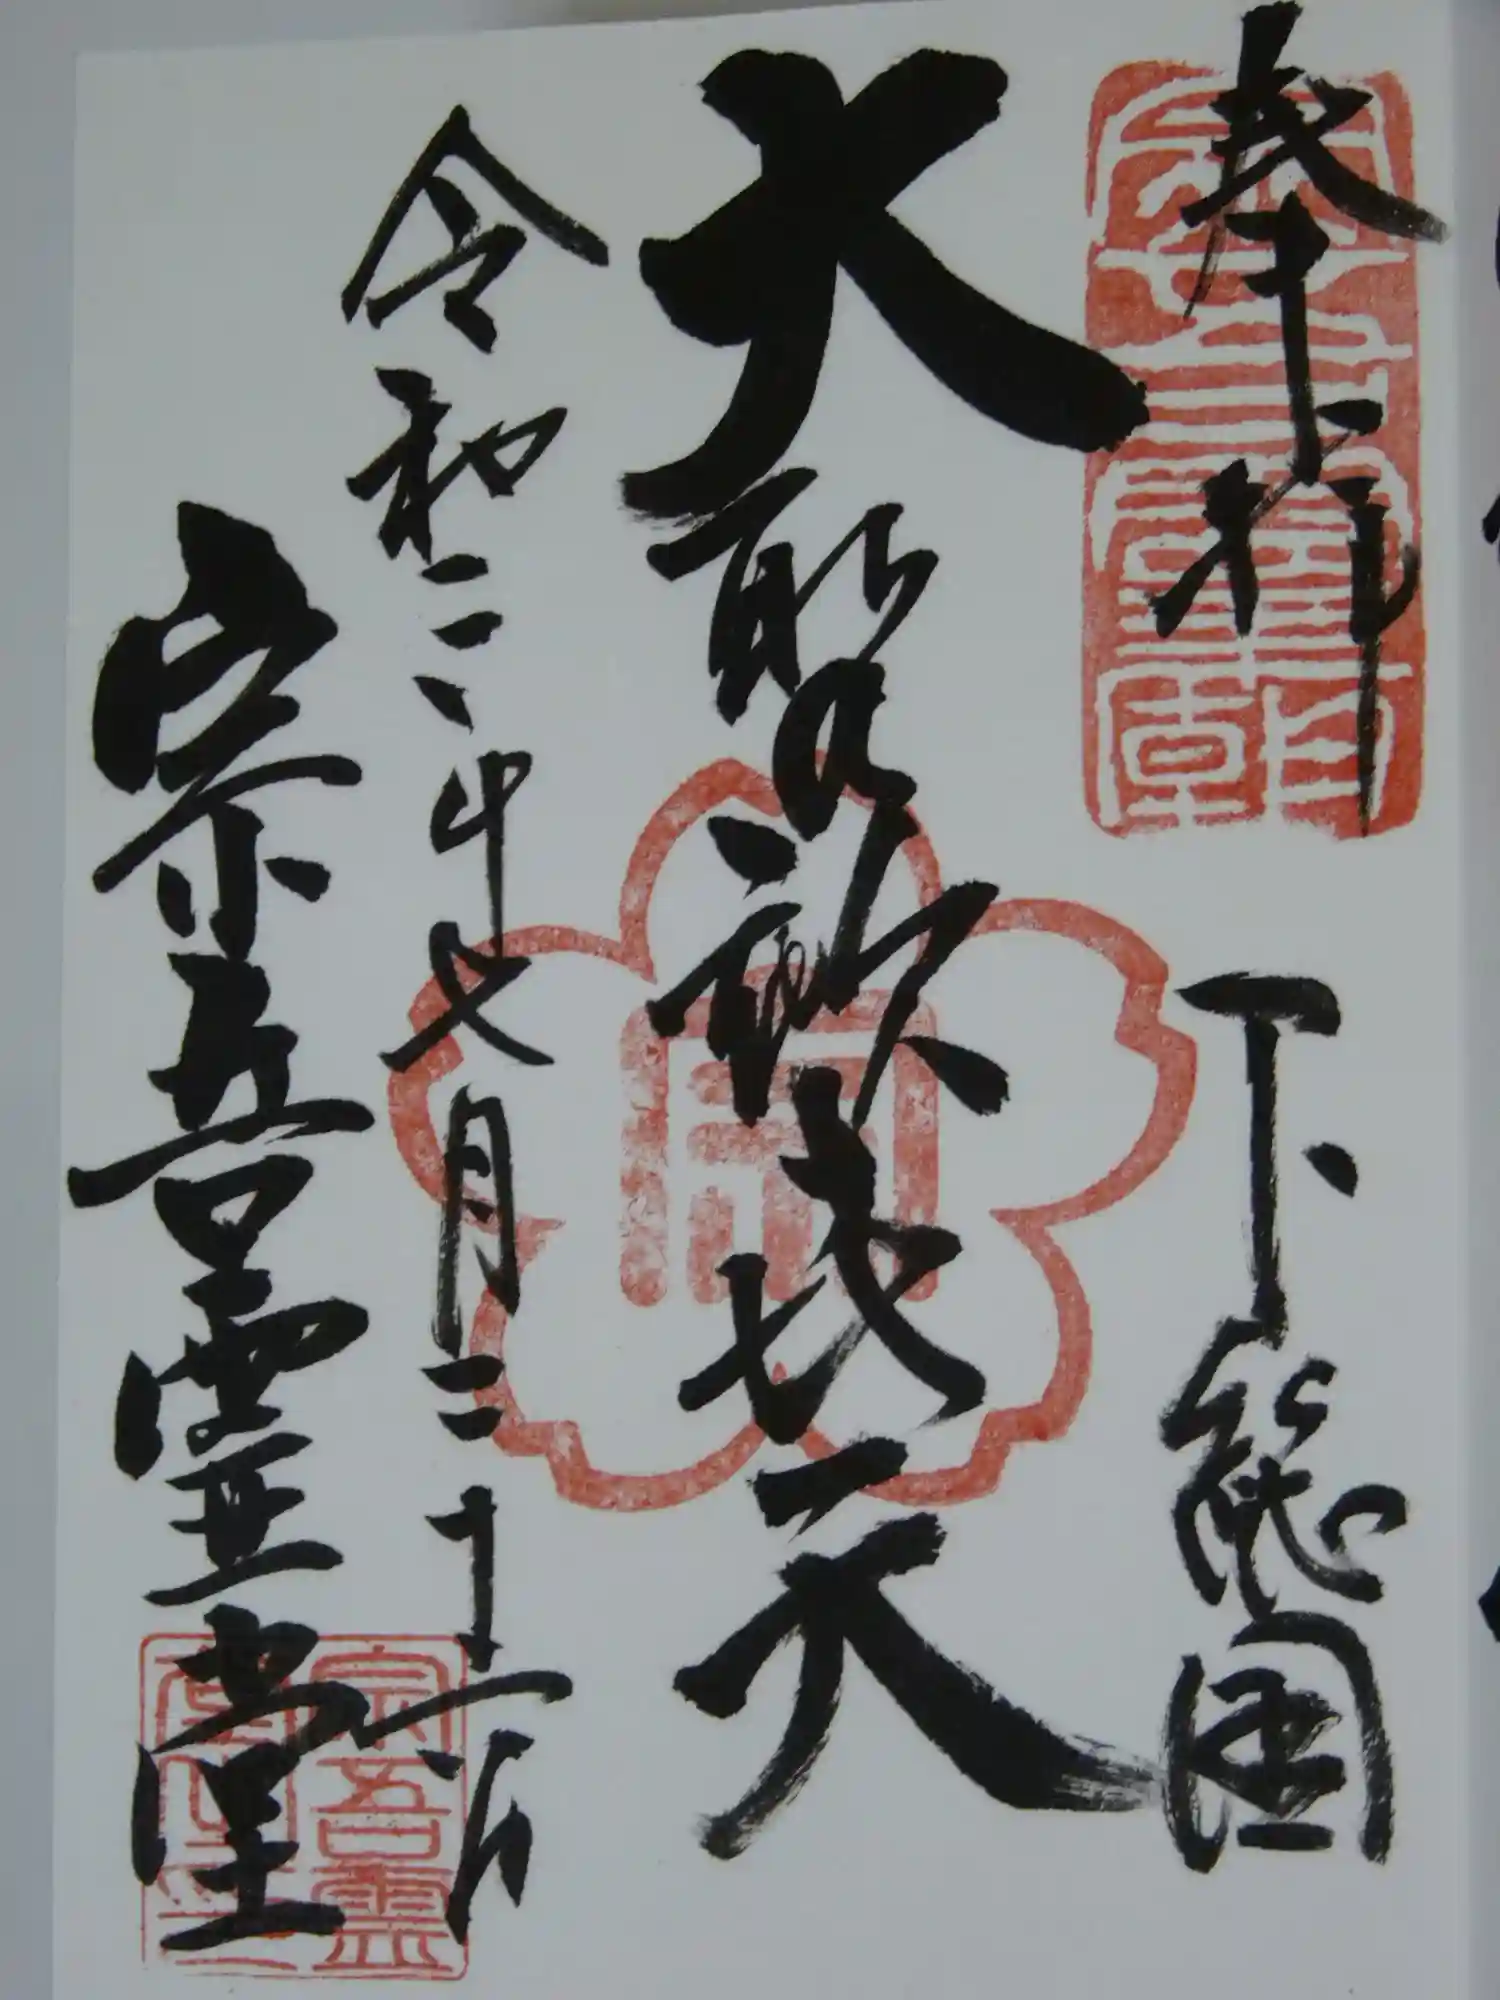 奉拝　下総国
大聖歓喜天
令和二年七月二十六日
宗吾霊堂
宗吾霊堂之印